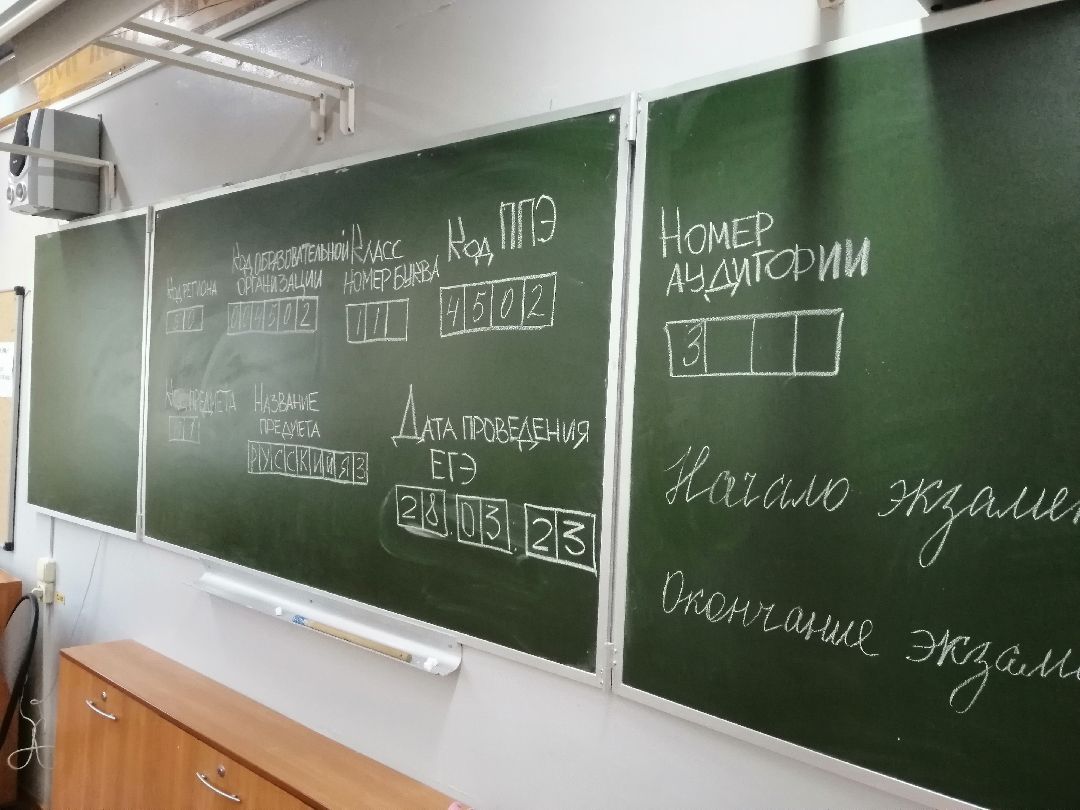 Код региона
Код образовательной
организации
004502
Класс
номер буква
11
Код ППЭ
4502
Код предмета
01
Название
предмета
РУССКИЙЯЗ
Дата проведения
ЕГЭ
28.03.23
Номер
аудитории
3
Начало экзамен
Окончание экзаме